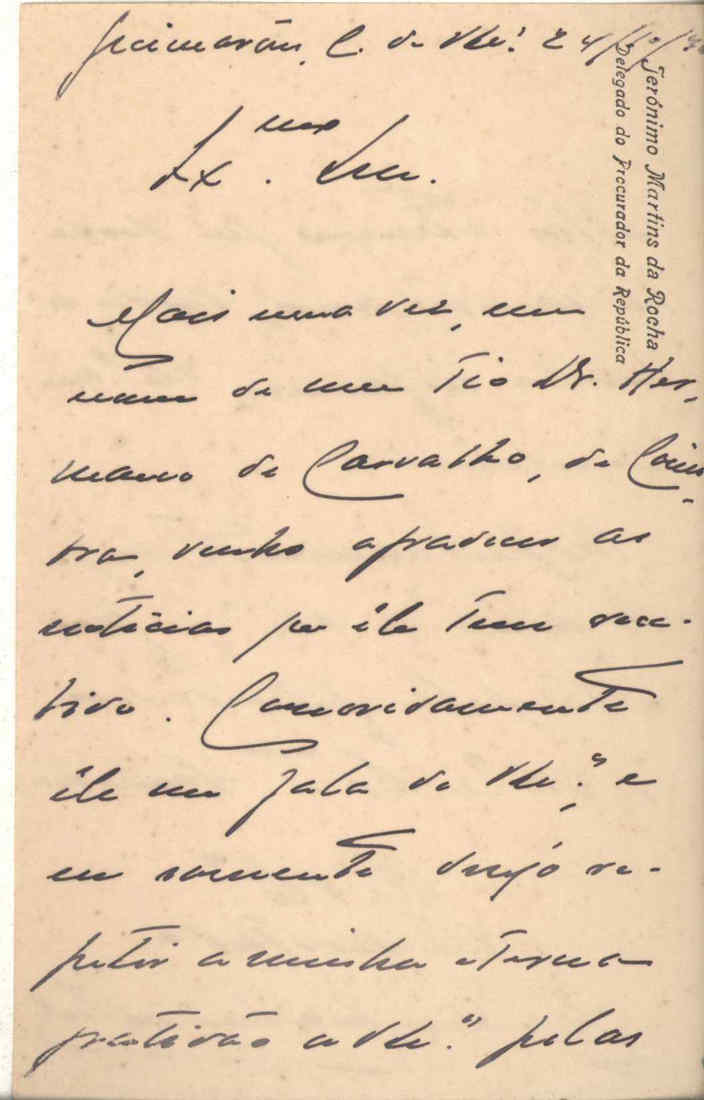 Guimarães, C. de V.ª Ex.ª 24/10/
Jerónimo Martins da Rocha
Delegado do Procurador da República
Ex.mo Snr.
Mais uma vez, em
nome de meu Tio Dr. Her-
mano de Carvalho, de Coim-
bra, venho agradecer as
notícias que êle tem rece-
bido. Comovidamente
êle me fala de V. Ex.ª e
eu somente desejo re-
petir a minha eterna
gratidão a V. Ex.ª pelas